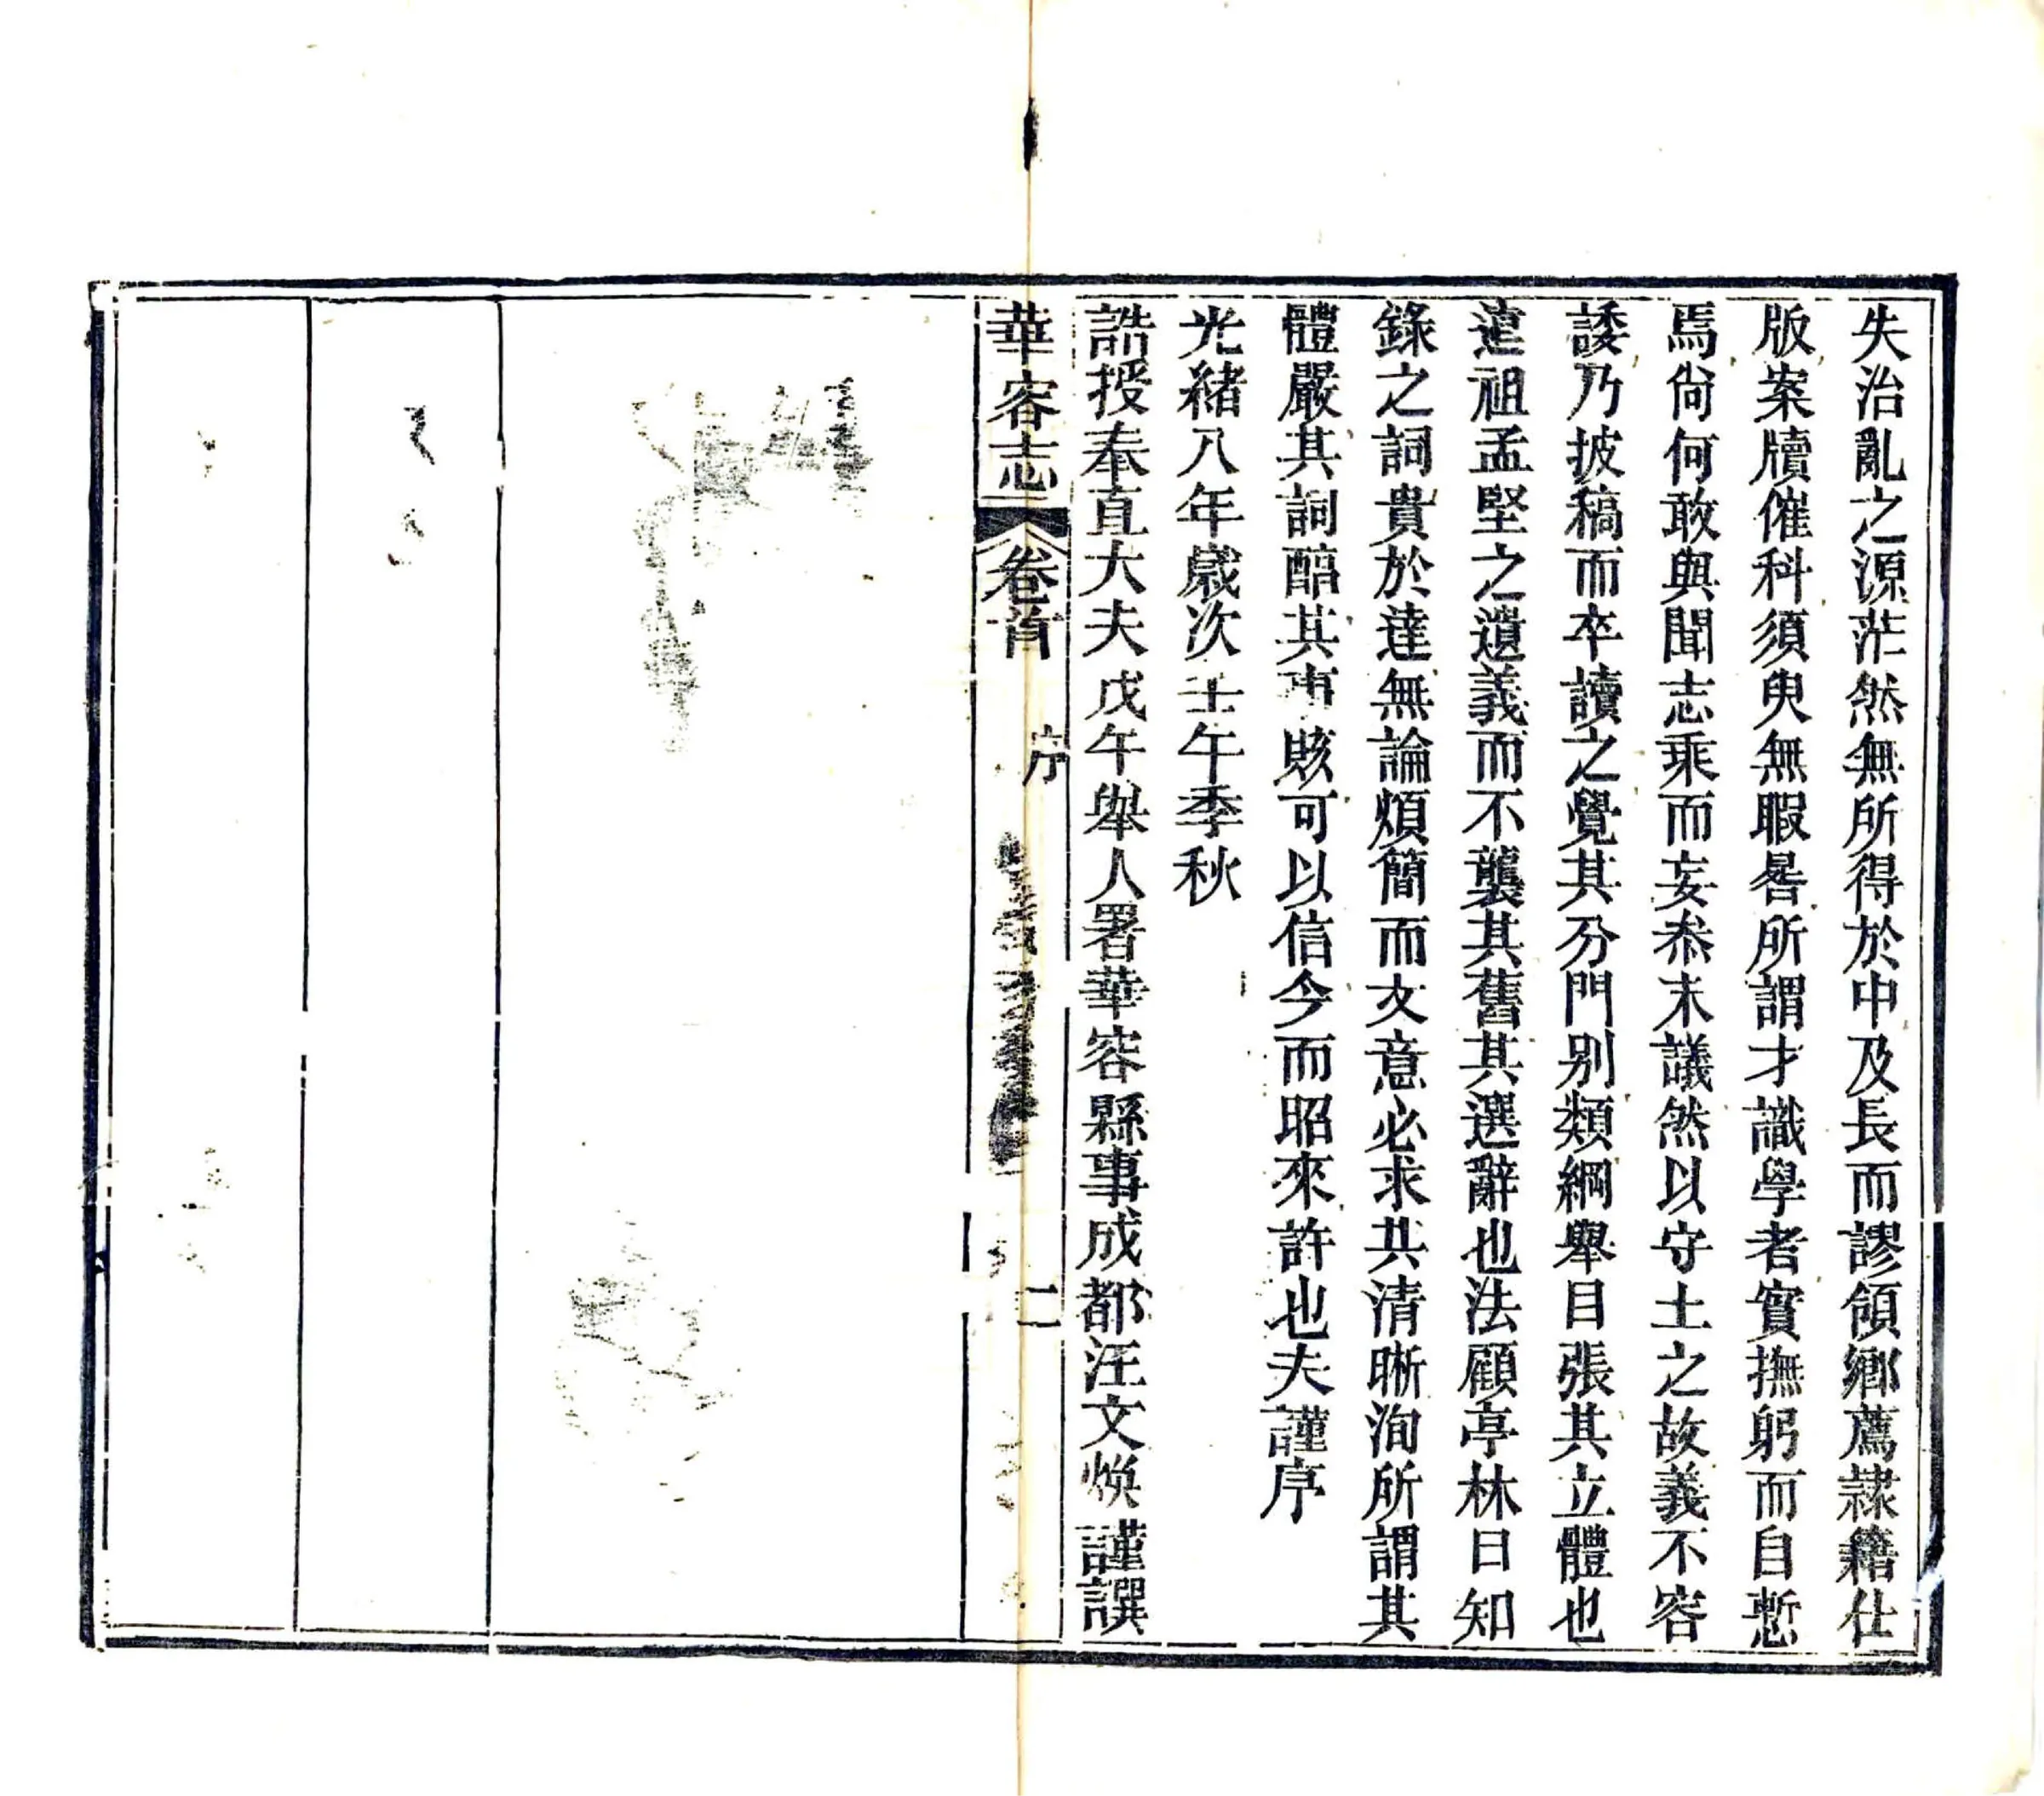 失治亂之源茫然無所得於中及長而謬領鄉薦隸籍仕
版案牘催科須臾無暇晷所謂才識學者實撫躬而自慙
焉尙何敢與聞志乘而妄叅末議然以守土之故義不容
諉乃披稿而卒讀之覺其分門别類綱舉目張其立體也
遠祖孟堅之遺義而不襲其舊其選辭也法顧亭林日知
錄之詞貴於達無論煩簡而文意必求其清晰洵所謂其
體嚴其詞酷其事賅可以信今而昭來許也夫謹序
光緒八年歲次壬午季秋
誥授奉直大夫戊午舉人署華容縣事成都汪文煥謹譔
華容志 卷首 序 二